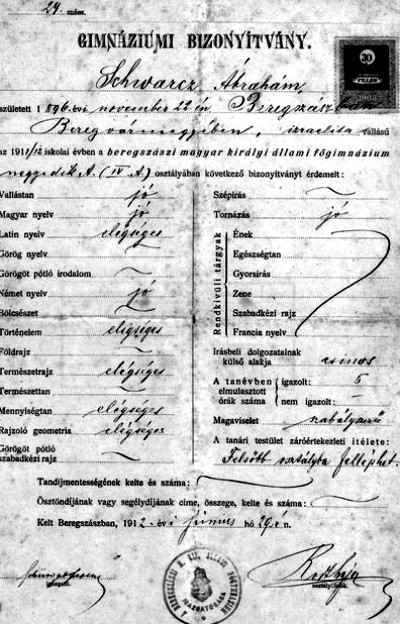 24. szám.
GIMNÁZIUMI BIZONYÍTVÁNY.
30
FILLÉR
Schwarcz Ábrahám
született 1896. évi november 22 én Beregszászban
Bereg vármegyében, izraelita vallású
az 1911/12 iskolai évben a beregszászi magyar királyi állami főgimnázium
negyedik A. (IV A.) osztályában következő bizonyítványt érdemelt:
Vallástan jó
Magyar nyelv jó
Latin nyelv elégséges
Görög nyelv
Görögöt pótló irodalom —
Német nyelv jó
Bölcsészet —
Történelem elégséges
Földrajz —
Természetrajz elégséges
Természettan —
Mennyiségtan elégséges
Rajzoló geometria elégséges
Görögöt pótló
szabadkézi rajz —
Szépírás —
Tornázás jó
Rendkívüli tárgyak
Ének
Egészségtan
Gyorsírás
Zene
Szabadkézi rajz
Francia nyelv
Írásbeli dolgozatainak
külső alakja csinos
A tanévben
elmulasztott
órák száma
igazolt: 5
nem igazolt: —
Magaviselet szabályszerű
A tanári testület záróértekezleti ítélete:
Felsőbb osztályba felléphet.
Tandíjmentességének kelte és száma: —
Ösztöndíjának vagy segélydíjának címe, összege, kelte és száma: —
Kelt Beregszászban, 1912. évi június hó 29. én.